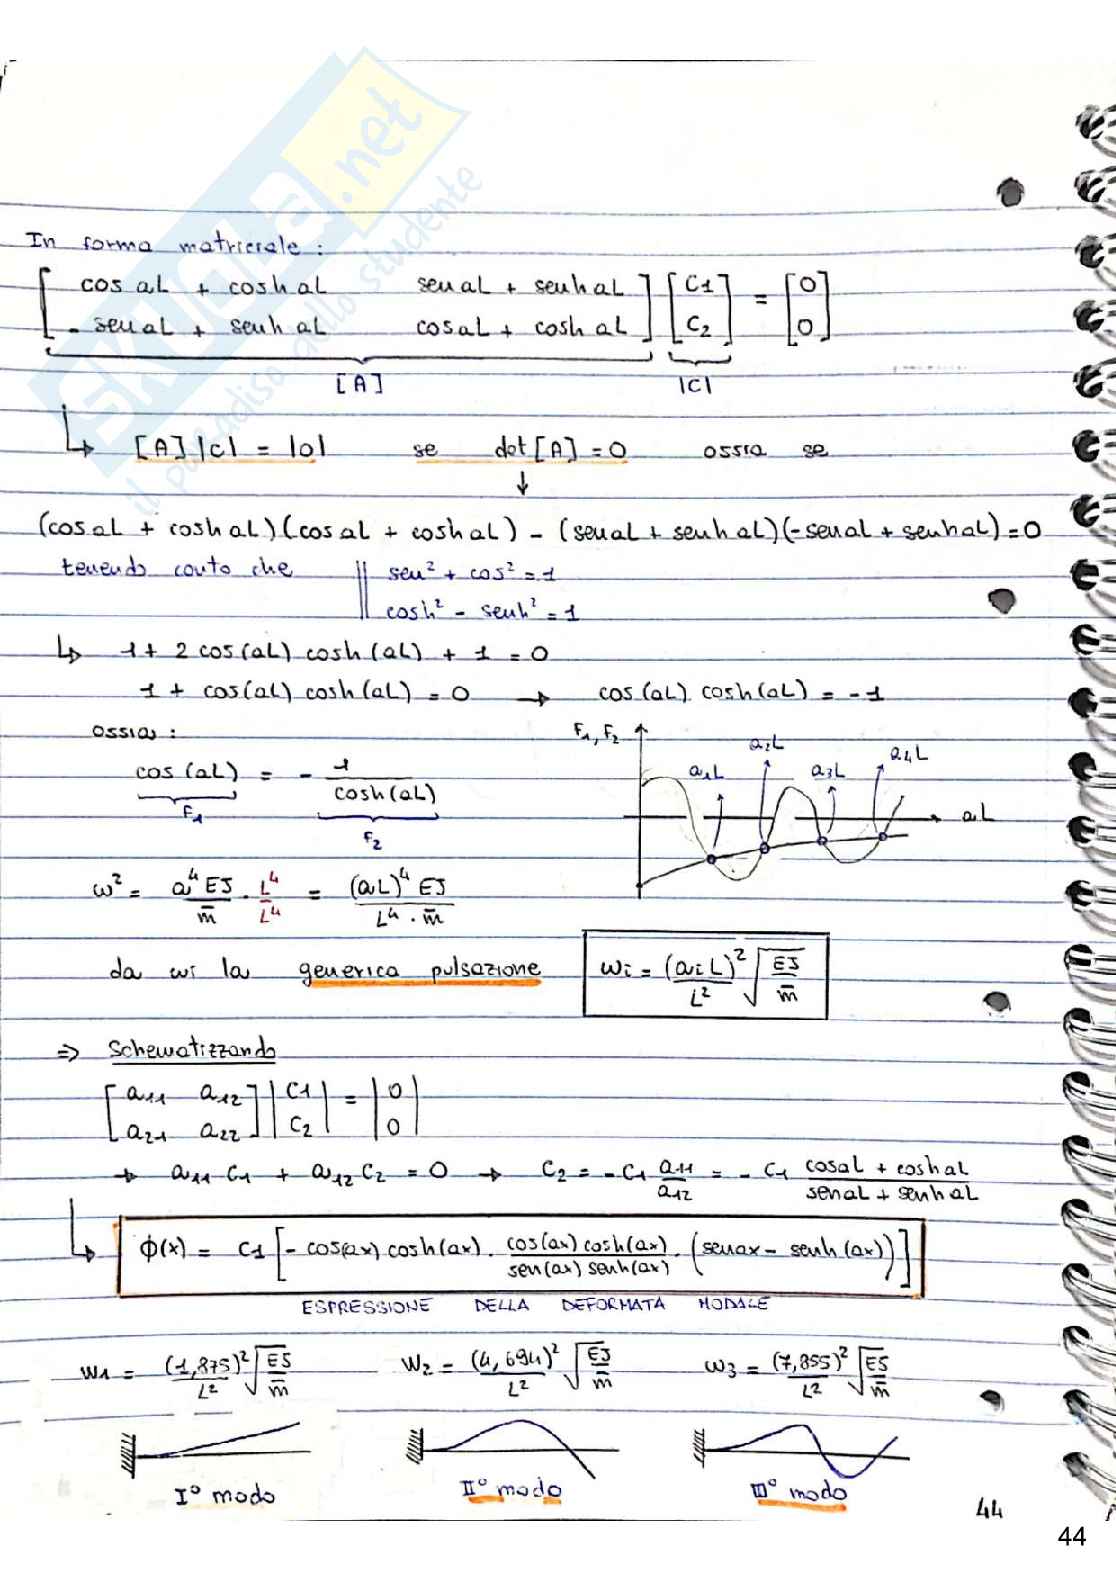 SKUOLA.net
il paradiso dello studente
In forma matriciale :
[ cos aL + cosh aL   sen aL + senh aL ] [ C1 ] = [ 0 ]
[ - sen aL + senh aL   cos aL + cosh aL ] [ C2 ]   [ 0 ]
[A]   |C|
↳ [A] |C| = |0|   se   det [A] = 0   ossia se
↓
(cos aL + cosh aL) (cos aL + cosh aL) - (sen aL + senh aL) (- sen aL + senh aL) = 0
tenendo conto che   || sen² + cos² = 1
cosh² - senh² = 1
↳ 1 + 2 cos (aL) cosh (aL) + 1 = 0
1 + cos (aL) cosh (aL) = 0 → cos (aL) cosh (aL) = -1
ossia :
F1, F2
a1L   a2L   a3L   a4L
aL
cos (aL) = - 1 / cosh (aL)
F1   F2
ω² = a⁴ EJ / m̄ · L⁴ / L⁴ = (aL)⁴ EJ / L⁴ · m̄
da cui la generica pulsazione   ωi = (ai L)² / L² √ EJ / m̄
⇒ Schematizzando
[ a11   a12 ] | C1 | = | 0 |
[ a21   a22 ] | C2 |   | 0 |
→ a11 C1 + a12 C2 = 0 → C2 = - C1 a11 / a12 = - C1 cos aL + cosh aL / sen aL + senh aL
↳ Φ(x) = C1 [ - cos(ax) cosh (ax) . cos (ax) cosh (ax) / sen (ax) senh (ax) . ( sen ax - senh (ax) ) ]
ESPRESSIONE DELLA DEFORMATA MODALE
ω1 = (1,875)² / L² √ EJ / m̄   ω2 = (4,694)² / L² √ EJ / m̄   ω3 = (7,855)² / L² √ EJ / m̄
I° modo   II° modo   III° modo
44
44